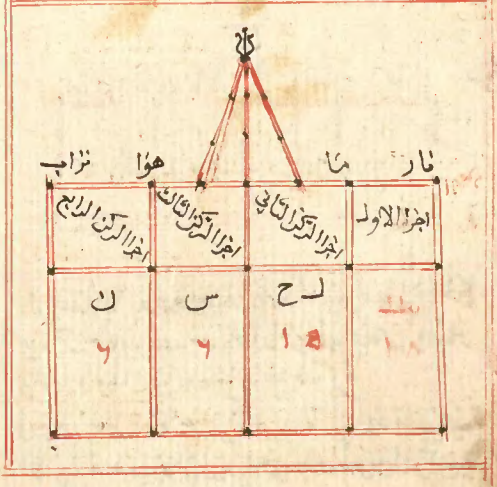 نار ما هوا تراب
اجزا الاول اجزا الركن الثاني اجزا الركن الثالث اجزا الركن الرابع
س ن
٦ ٦